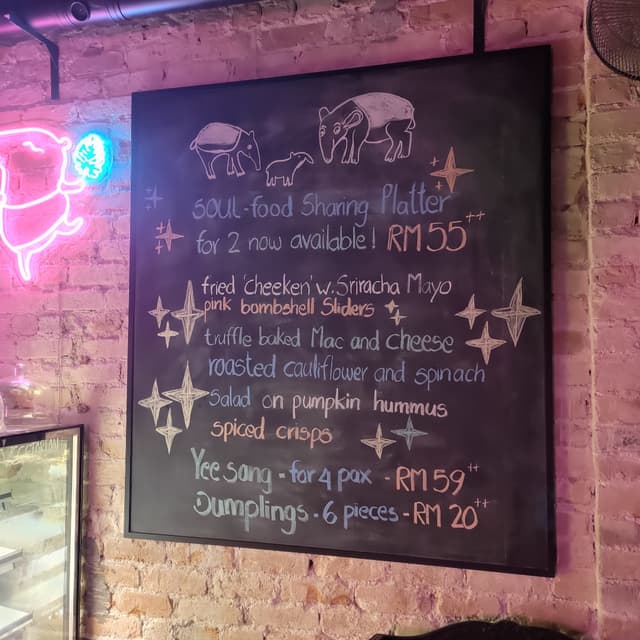 SOUL-food Sharing Platter
for 2 now available! RM55++
fried 'Cheeken' w. Sriracha Mayo
pink bombshell Sliders
truffle baked Mac and cheese
roasted cauliflower and spinach
salad on pumpkin hummus
spiced crisps
Yee sang - for 4 pax - RM59++
Dumplings - 6 pieces - RM 20++